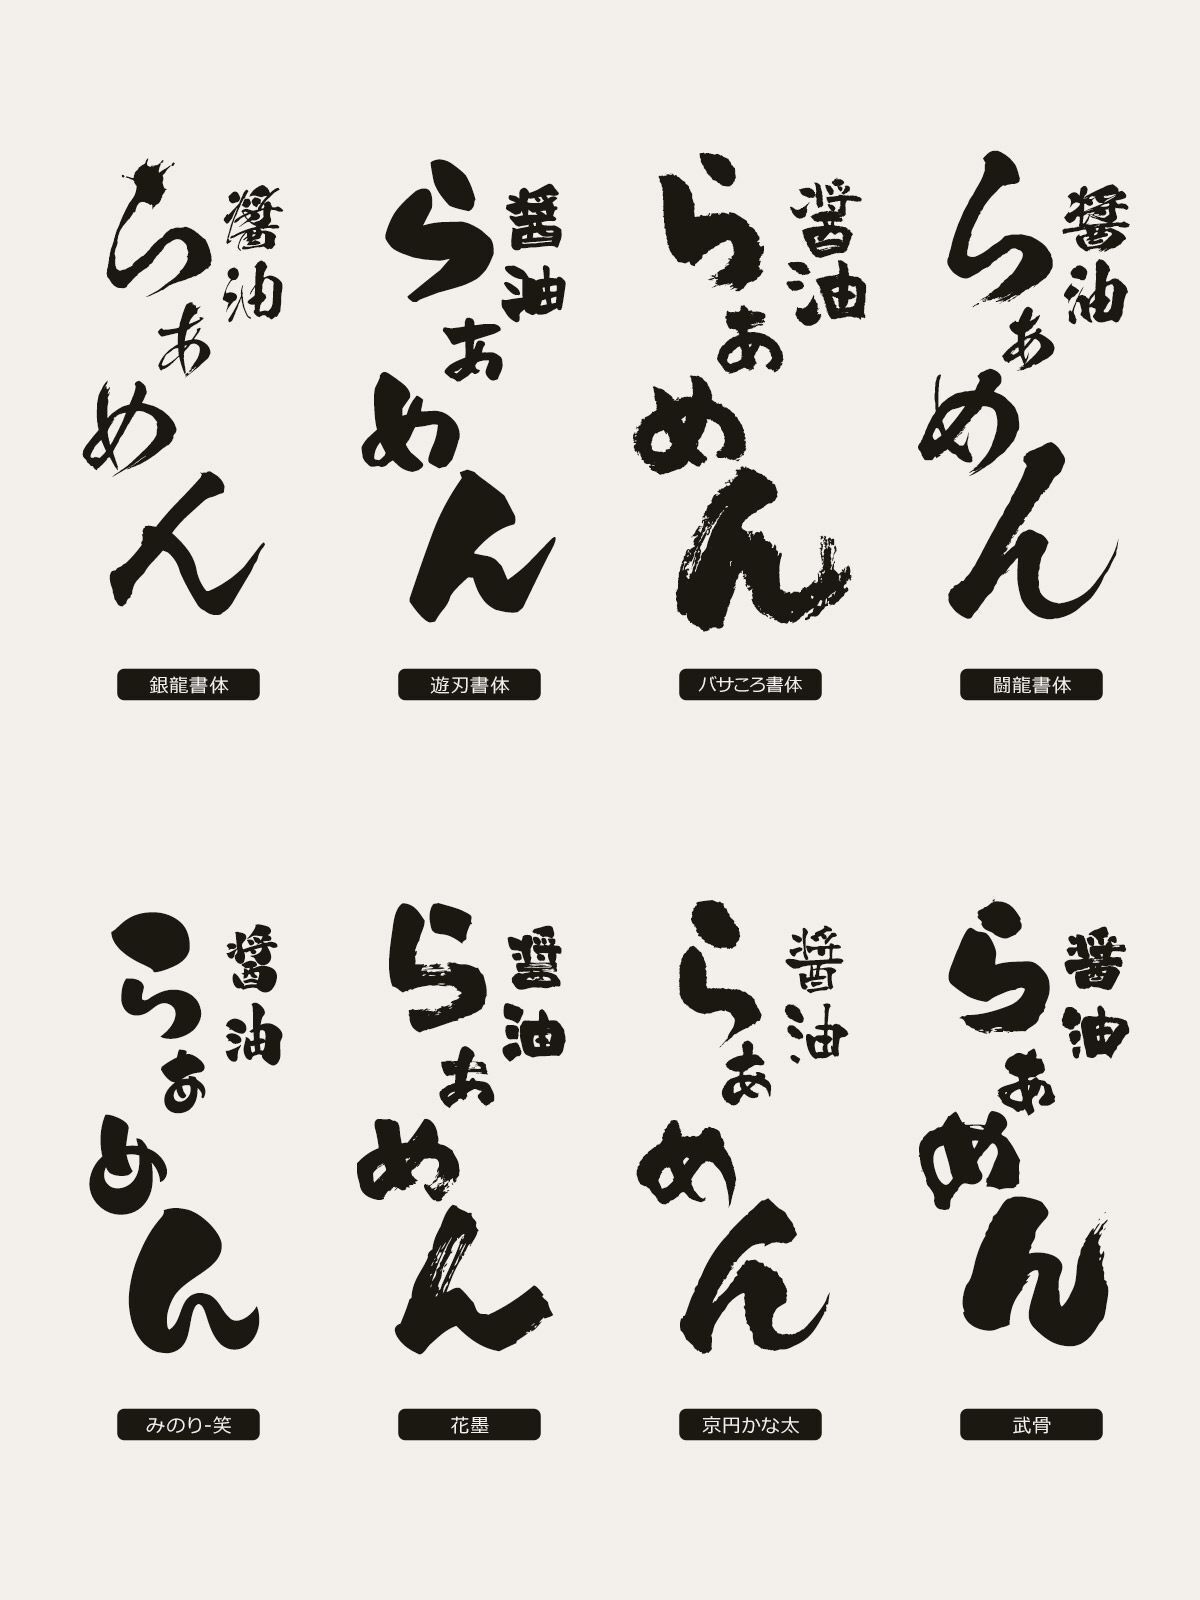 醤油
らぁめん
銀龍書体
醤油
らぁめん
遊刃書体
醤油
らぁめん
バサころ書体
醤油
らぁめん
闘龍書体
醤油
らぁめん
みのり-笑
醤油
らぁめん
花墨
醤油
らぁめん
京円かな太
醤油
らぁめん
武骨